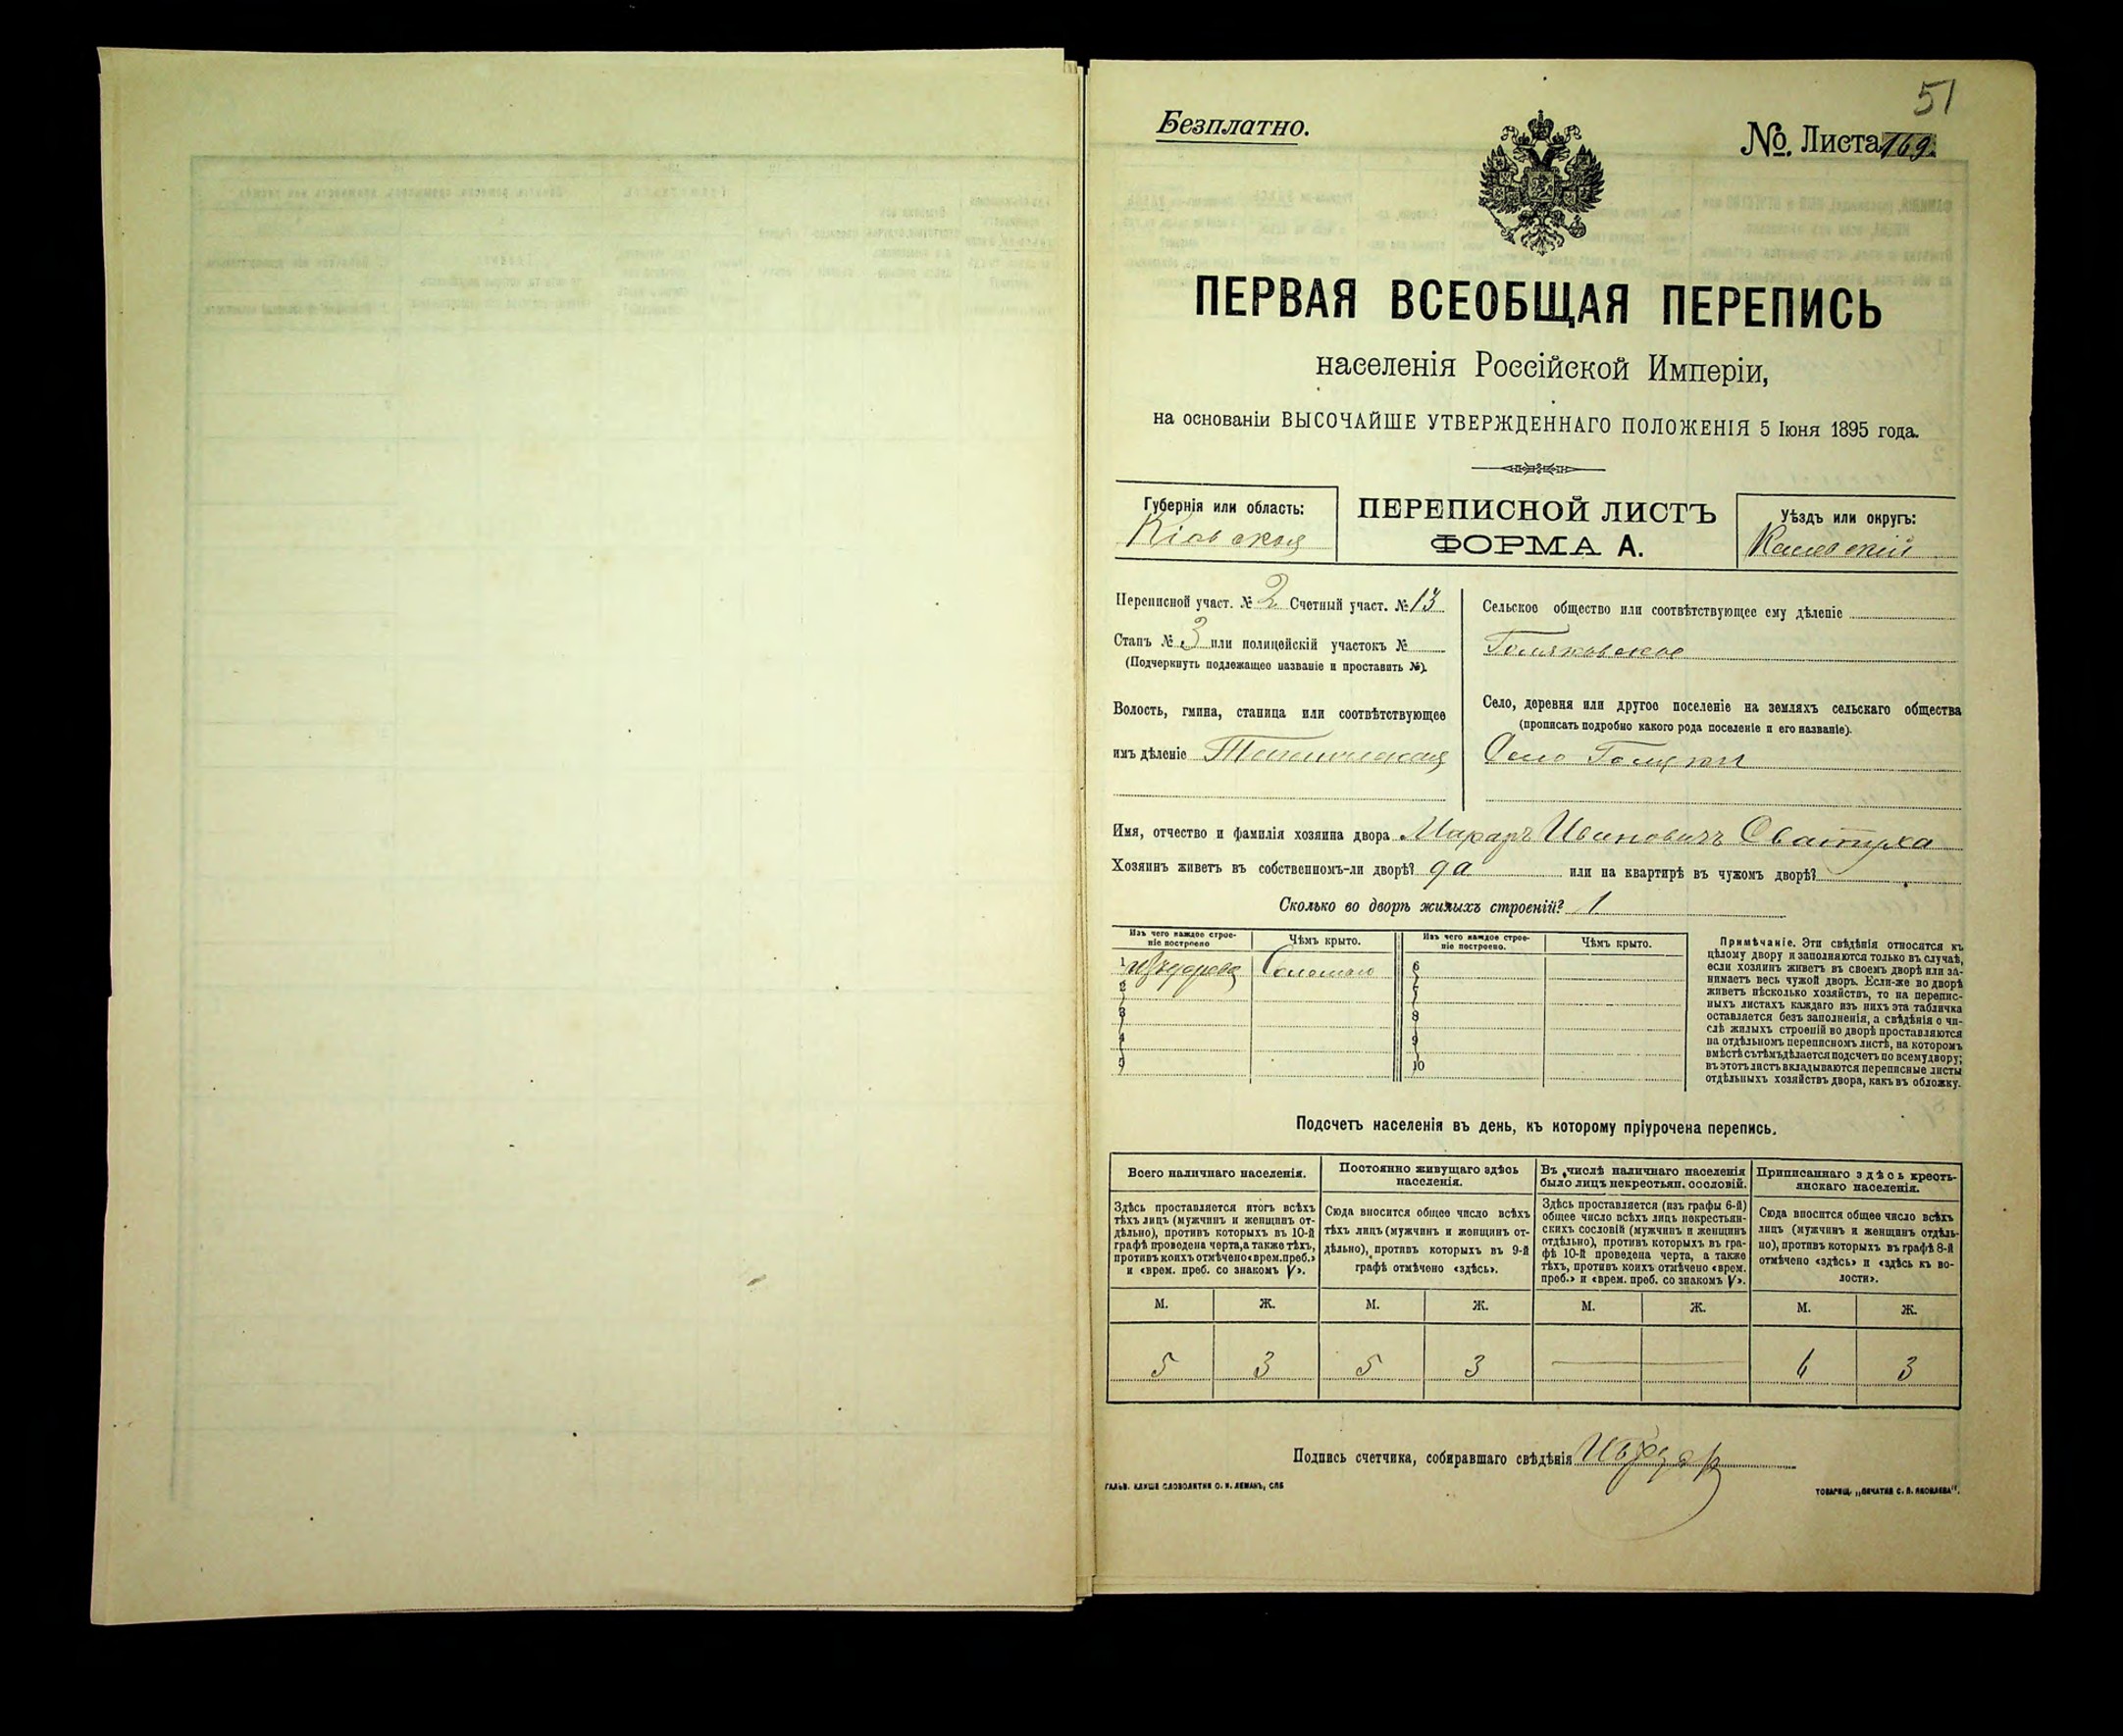 51
Безплатно.
№ Листа 169.
ПЕРВАЯ ВСЕОБЩАЯ ПЕРЕПИСЬ
населенія Россійской Имперіи,
на основаніи ВЫСОЧАЙШЕ УТВЕРЖДЕННАГО ПОЛОЖЕНІЯ 5 Іюня 1895 года.
Губернія или область:
Кіевская
ПЕРЕПИСНОЙ ЛИСТЪ
ФОРМА А.
Уѣздъ или округъ:
Каневскій
Переписной участ. № 2 Счетный участ. № 13
Станъ № 3 или полицейскій участокъ №
(Подчеркнуть подлежащее названіе и проставить №).
Волость, гмина, станица или соотвѣтствующее
имъ дѣленіе
Сельское общество или соотвѣтствующее ему дѣленіе
Село, деревня или другое поселеніе на земляхъ сельскаго общества
(прописать подробно какого рода поселеніе и его названіе).
Село
Имя, отчество и фамилія хозяина двора Макаръ Ивановичъ Сватуха
Хозяинъ живетъ въ собственномъ-ли дворѣ? да или на квартирѣ въ чужомъ дворѣ?
Сколько во дворѣ жилыхъ строеній? 1
Изъ чего каждое строе-
ніе построено
Чѣмъ крыто.
Изъ чего каждое строе-
ніе построено.
Чѣмъ крыто.
1 изъ дерева Соломою
2
3
4
5
6
7
8
9
10
Примѣчаніе. Эти свѣдѣнія относятся къ
цѣлому двору и заполняются только въ случаѣ,
если хозяинъ живетъ въ своемъ дворѣ или за-
нимаетъ весь чужой дворъ. Если-же во дворѣ
живетъ нѣсколько хозяйствъ, то на перепис-
ныхъ листахъ каждаго изъ нихъ эта табличка
оставляется безъ заполненія, а свѣдѣнія о чи-
слѣ жилыхъ строеній во дворѣ проставляются
на отдѣльномъ переписномъ листѣ, на которомъ
вмѣстѣ съ тѣмъ дѣлается подсчетъ по всему двору;
въ этотъ листъ вкладываются переписные листы
отдѣльныхъ хозяйствъ двора, какъ въ обложку.
Подсчетъ населенія въ день, къ которому пріурочена перепись.
Всего наличнаго населенія.
Здѣсь проставляется итогъ всѣхъ
тѣхъ лицъ (мужчинъ и женщинъ от-
дѣльно), противъ которыхъ въ 10-й
графѣ проведена черта, а также тѣхъ,
противъ коихъ отмѣчено «врем. преб.»
и «врем. преб. со знакомъ V».
Постоянно живущаго здѣсь
населенія.
Сюда вносится общее число всѣхъ
тѣхъ лицъ (мужчинъ и женщинъ от-
дѣльно), противъ которыхъ въ 9-й
графѣ отмѣчено «здѣсь».
Въ числѣ наличнаго населенія
было лицъ некрестьян. сословій.
Здѣсь проставляется (изъ графы 6-й)
общее число всѣхъ лицъ некрестьян-
скихъ сословій (мужчинъ и женщинъ
отдѣльно), противъ которыхъ въ гра-
фѣ 10-й проведена черта, а также
тѣхъ, противъ коихъ отмѣчено «врем.
преб.» и «врем. преб. со знакомъ V».
Приписаннаго здѣсь кресть-
янскаго населенія.
Сюда вносится общее число всѣхъ
лицъ (мужчинъ и женщинъ отдѣль-
но), противъ которыхъ въ графѣ 8-й
отмѣчено «здѣсь» и «здѣсь къ во-
лости».
М. Ж. М. Ж. М. Ж. М. Ж.
5 3 5 3 6 3
Подпись счетчика, собиравшаго свѣдѣнія
ГАЛЬВ. КЛИШЕ СЛОВОЛИТНИ О. И. ЛЕМАНЪ, СПБ
ТОВАРИЩ. „ПЕЧАТНЯ С. П. ЯКОВЛЕВА".